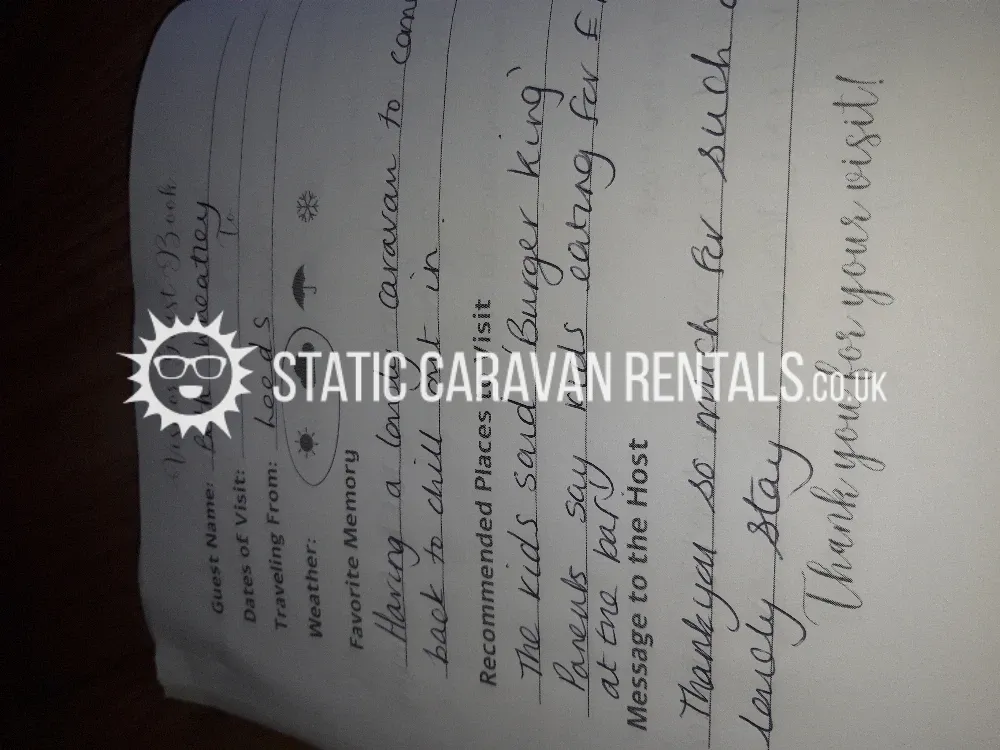 Guest Book
Guest Name:
Dates of Visit: To
Traveling From: Leeds
Weather:
Favorite Memory
Having a lovely caravan to come
back to chill out in
Recommended Places to Visit
The kids said 'Burger king'
Parents say kids eating for £1
at the bar
Message to the Host
Thankyou so much for such a
lovely stay
Thank you for your visit!
STATIC CARAVAN RENTALS.CO.UK